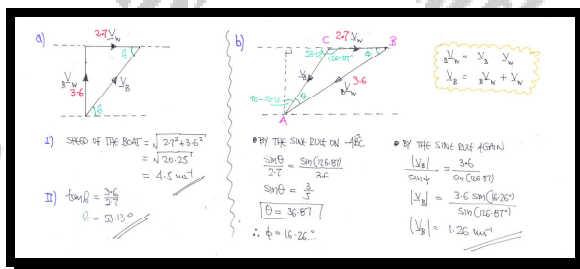 a)
2.7 V_w
θ
_BV_w
3.6
V_B
θ
I) SPEED OF THE BOAT = √2.7²+3.6²
= √20.25
= 4.5 ms⁻¹
II) tanθ = 3.6/2.7
θ = 53.13°
b)
C 2.7 V_w B
53.13°
126.87°
φ
V_B
3.6
_BV_w
90-53.13
θ
A
• BY THE SINE RULE ON ABC
sinθ/2.7 = sin(126.87)/3.6
sinθ = 3/5
θ = 36.87
∴ φ = 16.26...°
_BV_w = V_B V_w
V_B = _BV_w + V_w
• BY THE SINE RULE AGAIN
|V_B|/sinφ = 3.6/sin(126.87)
|V_B| = 3.6 sin(16.26°)/sin(126.87°)
|V_B| = 1.26 ms⁻¹